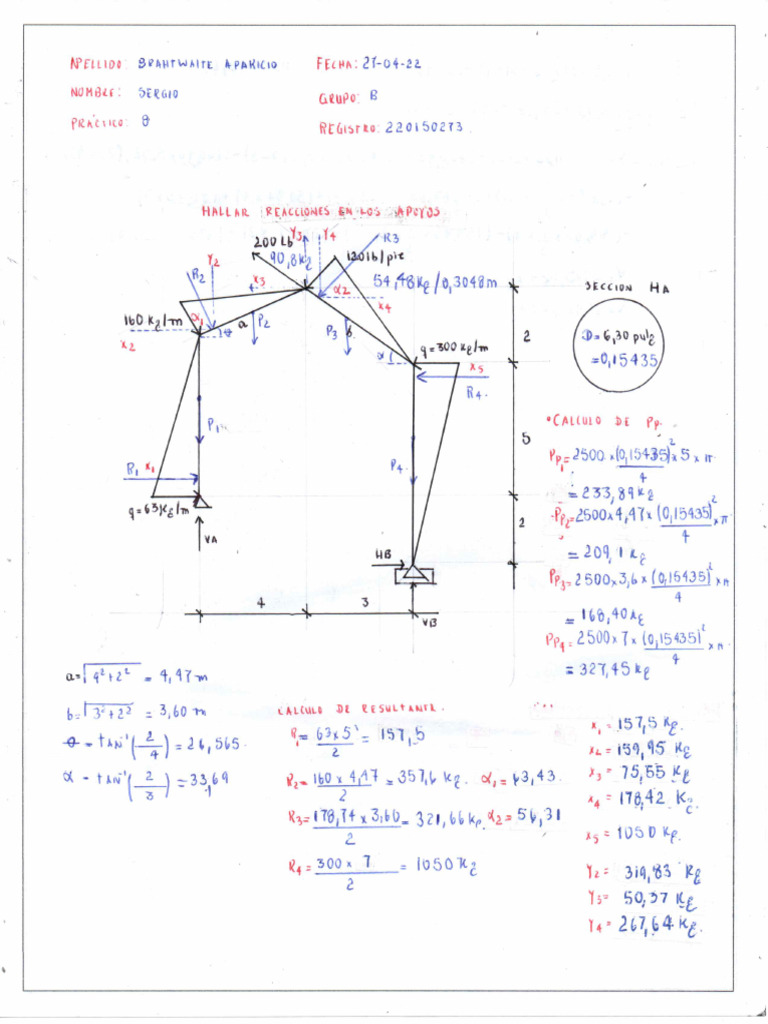 APELLIDO: BRAHTWAITE APARICIO
FECHA: 27-04-22
NOMBRE: SERGIO
GRUPO: B
PRÁCTICO: 8
REGISTRO: 220150273
HALLAR REACCIONES EN LOS APOYOS
200 Lb
90,8 Kg
Y3
Y4
R3
120 lb/pie
54,48 Kg/0,3048m
Y2
R2
X3
α2
X4
160 Kg/m
α1
θ
a
P2
P3
b
X2
α
q=300 Kg/m
X5
R4
P1
P4
R1
X1
q=63 Kg/m
VA
HB
VB
4
3
2
5
2
SECCION HA
D=6,30 pulg
=0,15435
• CALCULO DE Pp.
Pp1=2500×(0,15435)²×5×π
4
=233,89 Kg
Pp2=2500×4,47×(0,15435)²×π
4
=209,1 Kg
Pp3=2500×3,6×(0,15435)²×π
4
=168,40 Kg
Pp4=2500×7×(0,15435)²×π
4
=327,45 Kg
a=√4²+2² = 4,47 m
b=√3²+2² = 3,60 m
θ = tAN⁻¹(2/4) = 26,565
α = tAN⁻¹(2/3) = 33,69
CALCULO DE RESULTANTE.
R1= 63×5 = 157,5
2
R2= 160×4,47 = 357,6 Kg. α1= 63,43.
2
R3= 178,74×3,60 = 321,66 Kg. α2= 56,31
2
R4= 300×7 = 1050 Kg
2
...
X1= 157,5 Kg.
X2= 159,95 Kg.
X3= 75,55 Kg
X4= 178,42 Kg
X5= 1050 Kg.
Y2= 319,83 Kg
Y3= 50,37 Kg
Y4= 267,64 Kg.